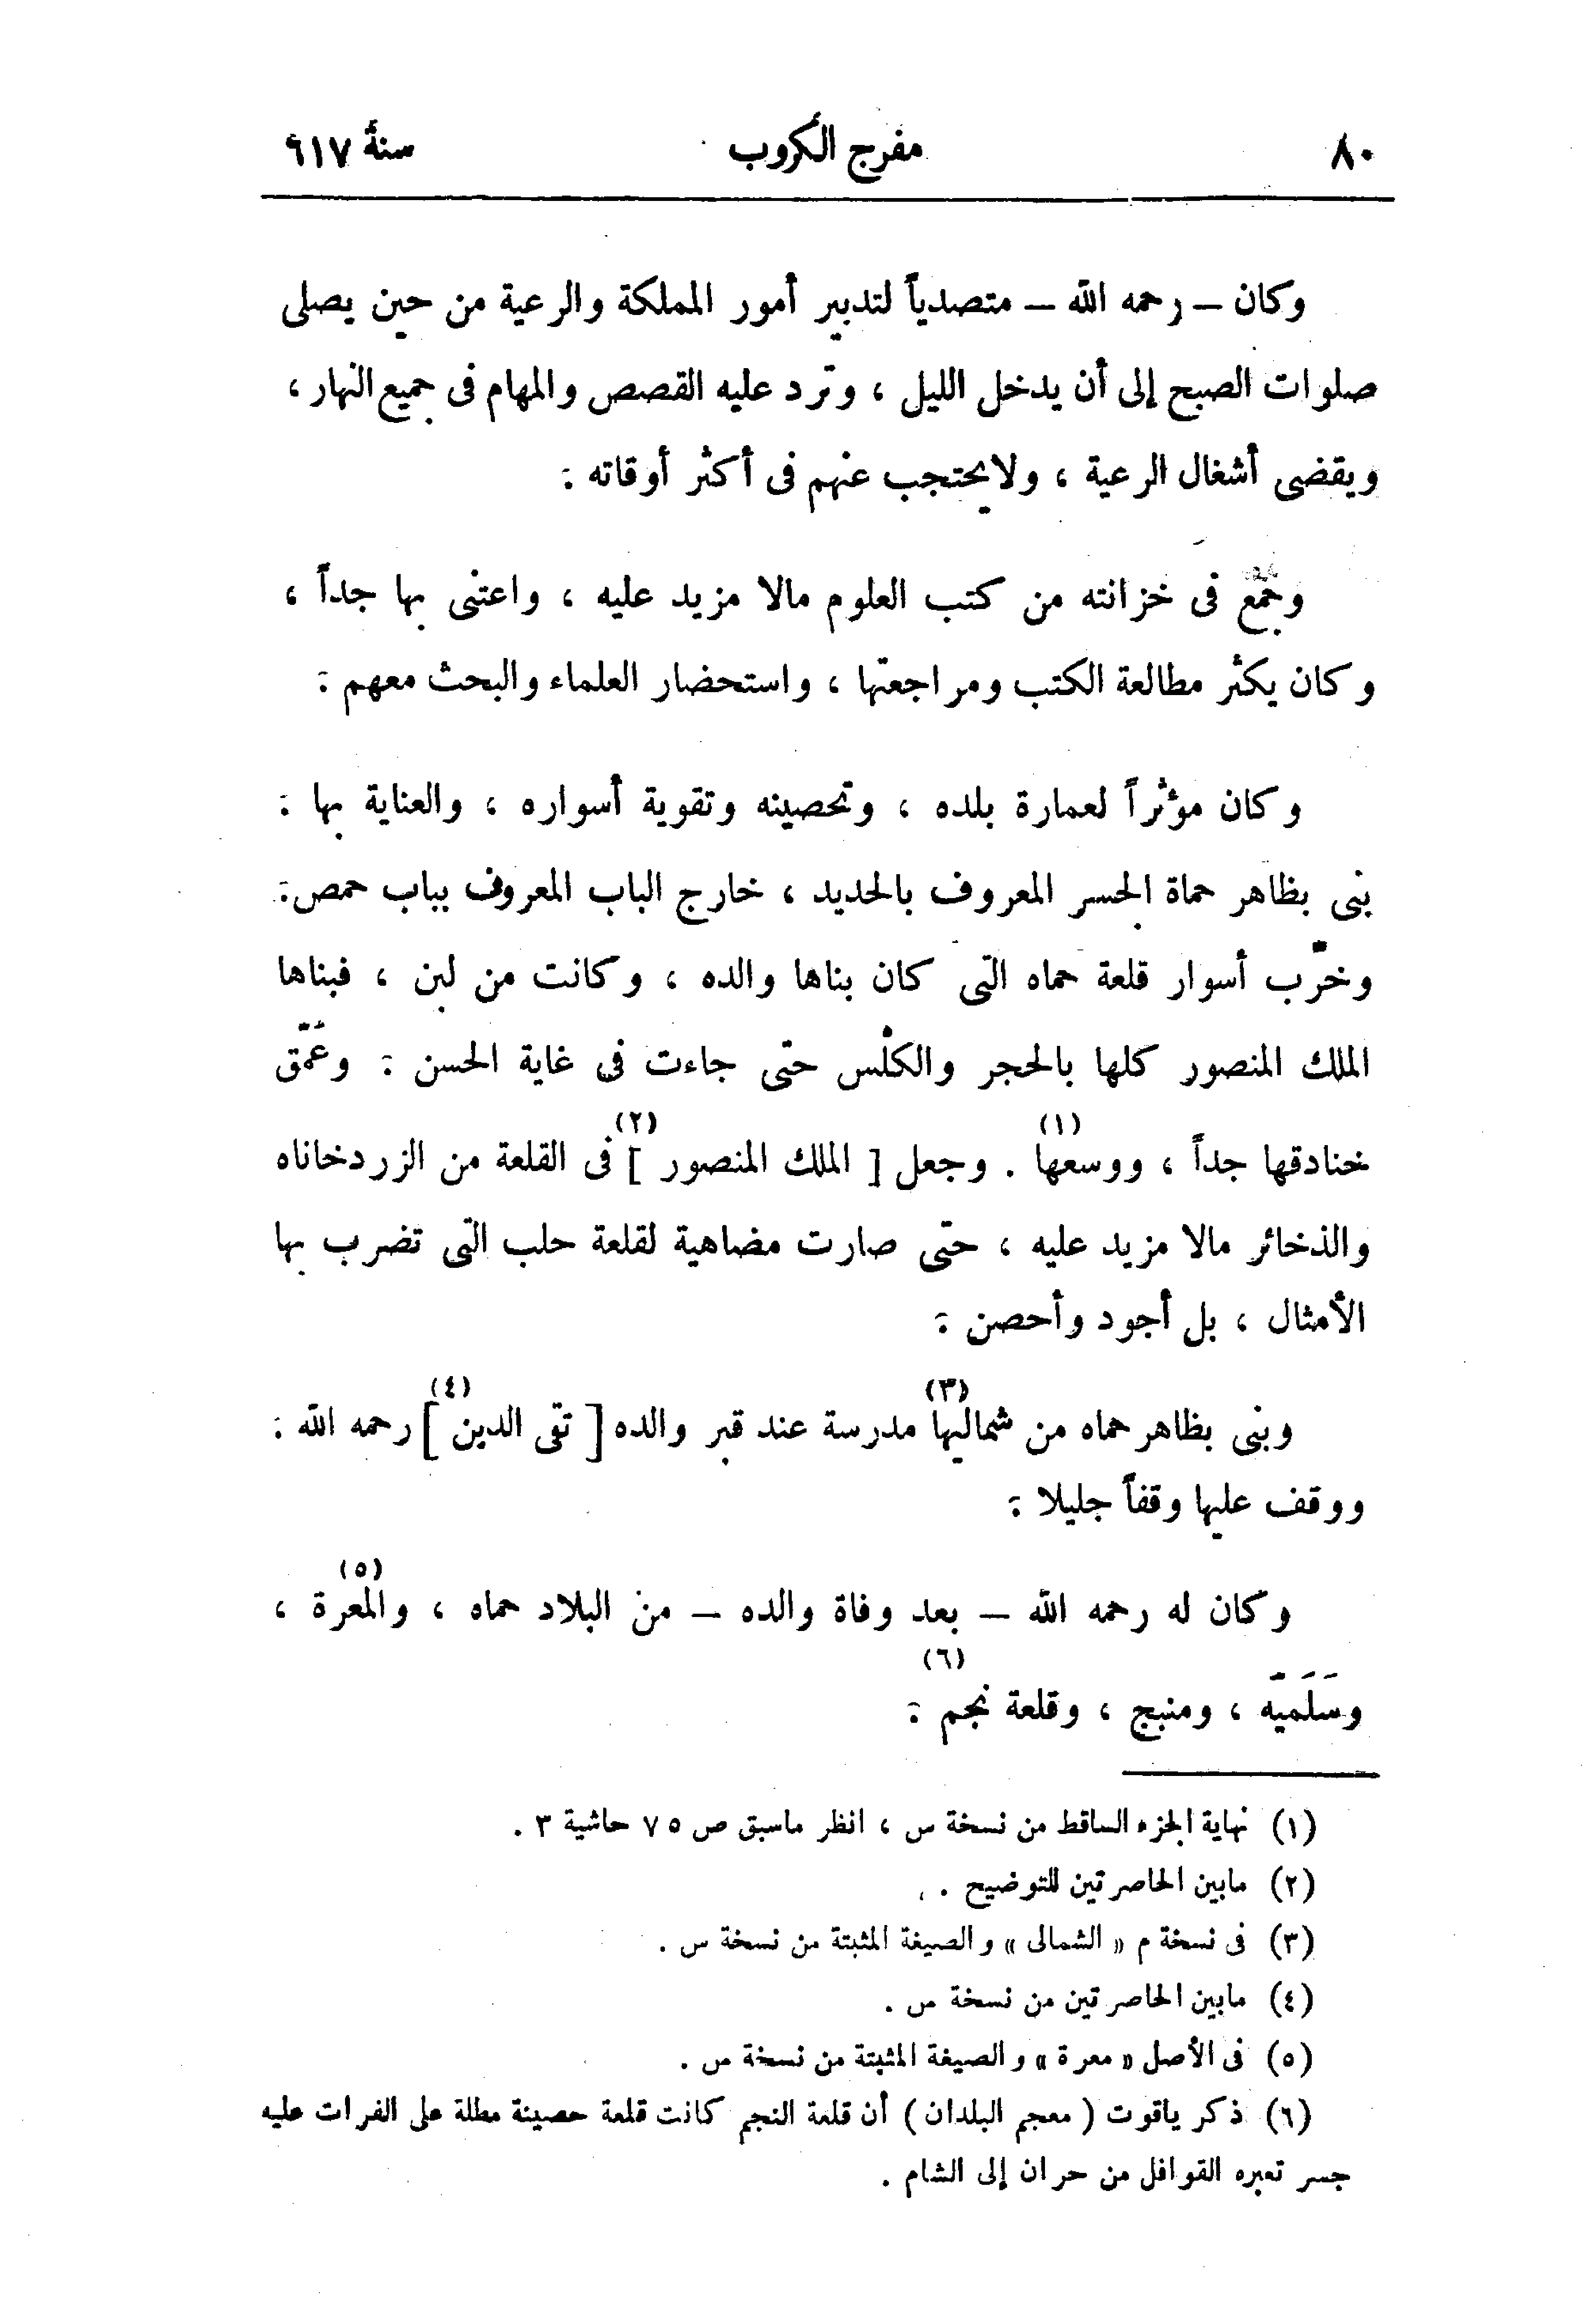 ٨٠ مفرج الكروب سنة ٦١٧
وكان – رحمه الله – متصدياً لتدبير أمور المملكة والرعية من حين يصلى
صلوات الصبح إلى أن يدخل الليل ، وترد عليه القصص والمهام فى جميع النهار ،
ويقضى أشغال الرعية ، ولا يحتجب عنهم فى أكثر أوقاته :
وجمع فى خزانته من كتب العلوم مالا مزيد عليه ، واعتنى بها جداً ،
وكان يكثر مطالعة الكتب ومراجعتها ، واستحضار العلماء والبحث معهم :
وكان مؤثراً لعمارة بلده ، وتحصينه وتقوية أسواره ، والعناية بها :
بنى بظاهر حماة الجسر المعروف بالحديد ، خارج الباب المعروف بباب حمص :
وخرّب أسوار قلعة حماه التى كان بناها والده ، وكانت من لبن ، فبناها
الملك المنصور كلها بالحجر والكلْس حتى جاءت فى غاية الحسن : وعَمّق
خنادقها جداً ، ووسعها (١) . وجعل [ الملك المنصور ] (٢) فى القلعة من الزردخاناه
والذخائر مالا مزيد عليه ، حتى صارت مضاهية لقلعة حلب التى تضرب بها
الأمثال ، بل أجود وأحصن :
وبنى بظاهر حماه من شماليها (٣) مدرسة عند قبر والده [ تقى الدين ] (٤) رحمه الله :
ووقف عليها وقفاً جليلا :
وكان له رحمه الله – بعد وفاة والده – من البلاد حماه ، والمعرة (٥) ،
وسَلَميّه ، ومنبج ، وقلعة نجم (٦) :
(١) نهاية الجزء الساقط من نسخة س ، انظر ماسبق ص ٧٥ حاشية ٣ .
(٢) مابين الحاصرتين للتوضيح .
(٣) فى نسخة م « الشمالى » والصيغة المثبتة من نسخة س .
(٤) مابين الحاصرتين من نسخة س .
(٥) فى الأصل « معرة » والصيغة المثبتة من نسخة س .
(٦) ذكر ياقوت ( معجم البلدان ) أن قلعة النجم كانت قلعة حصينة مطلة على الفرات عليه
جسر تعبره القوافل من حران إلى الشام .